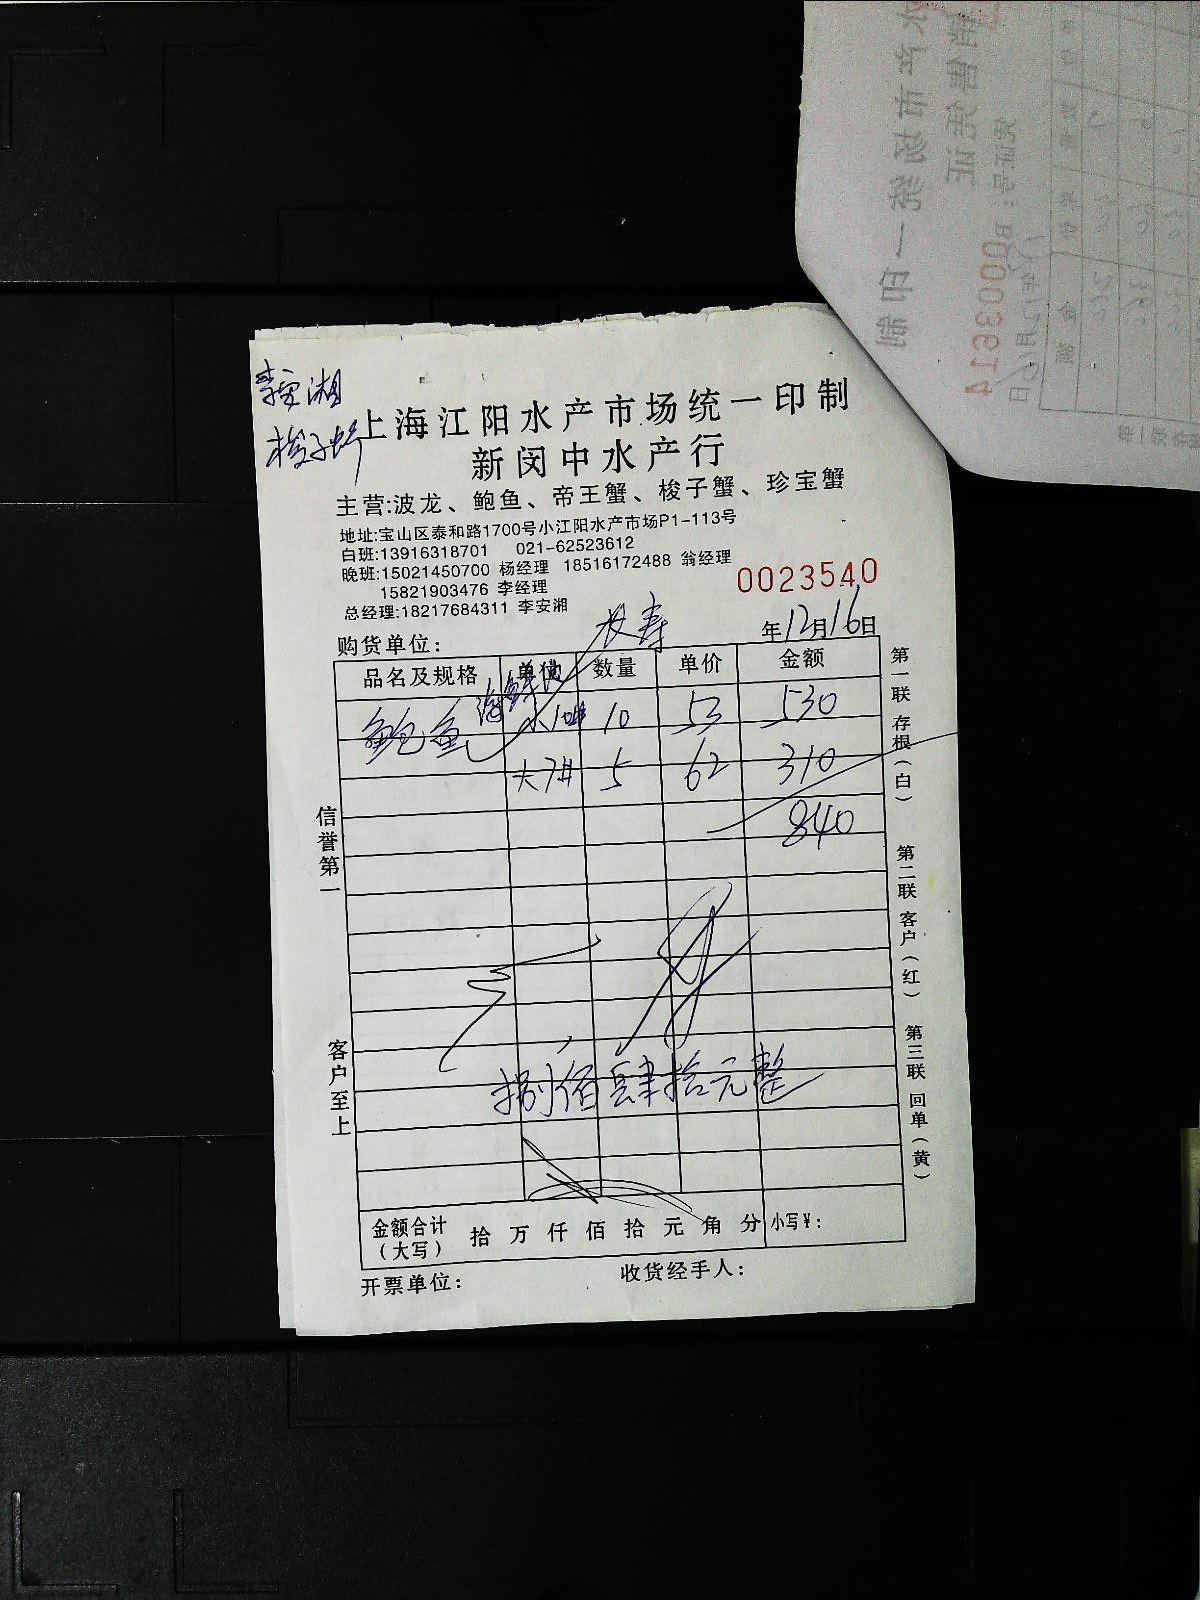 李安湘
梭子蟹
上海江阳水产市场统一印制
新闵中水产行
主营:波龙、鲍鱼、帝王蟹、梭子蟹、珍宝蟹
地址:宝山区泰和路1700号小江阳水产市场P1-113号
白班:13916318701 021-62523612
晚班:15021450700 杨经理 18516172488 翁经理
15821903476 李经理
总经理:18217684311 李安湘
0023540
购货单位: 长寿 年12月16日
品名及规格 单位 数量 单价 金额
鲍鱼 小10# 10 53 530
大7# 5 62 310
840
捌佰肆拾元整
金额合计 拾 万 仟 佰 拾 元 角 分 小写¥:
(大写)
开票单位: 收货经手人:
信誉第一
客户至上
第一联 存根(白)
第二联 客户(红)
第三联 回单(黄)
0003614